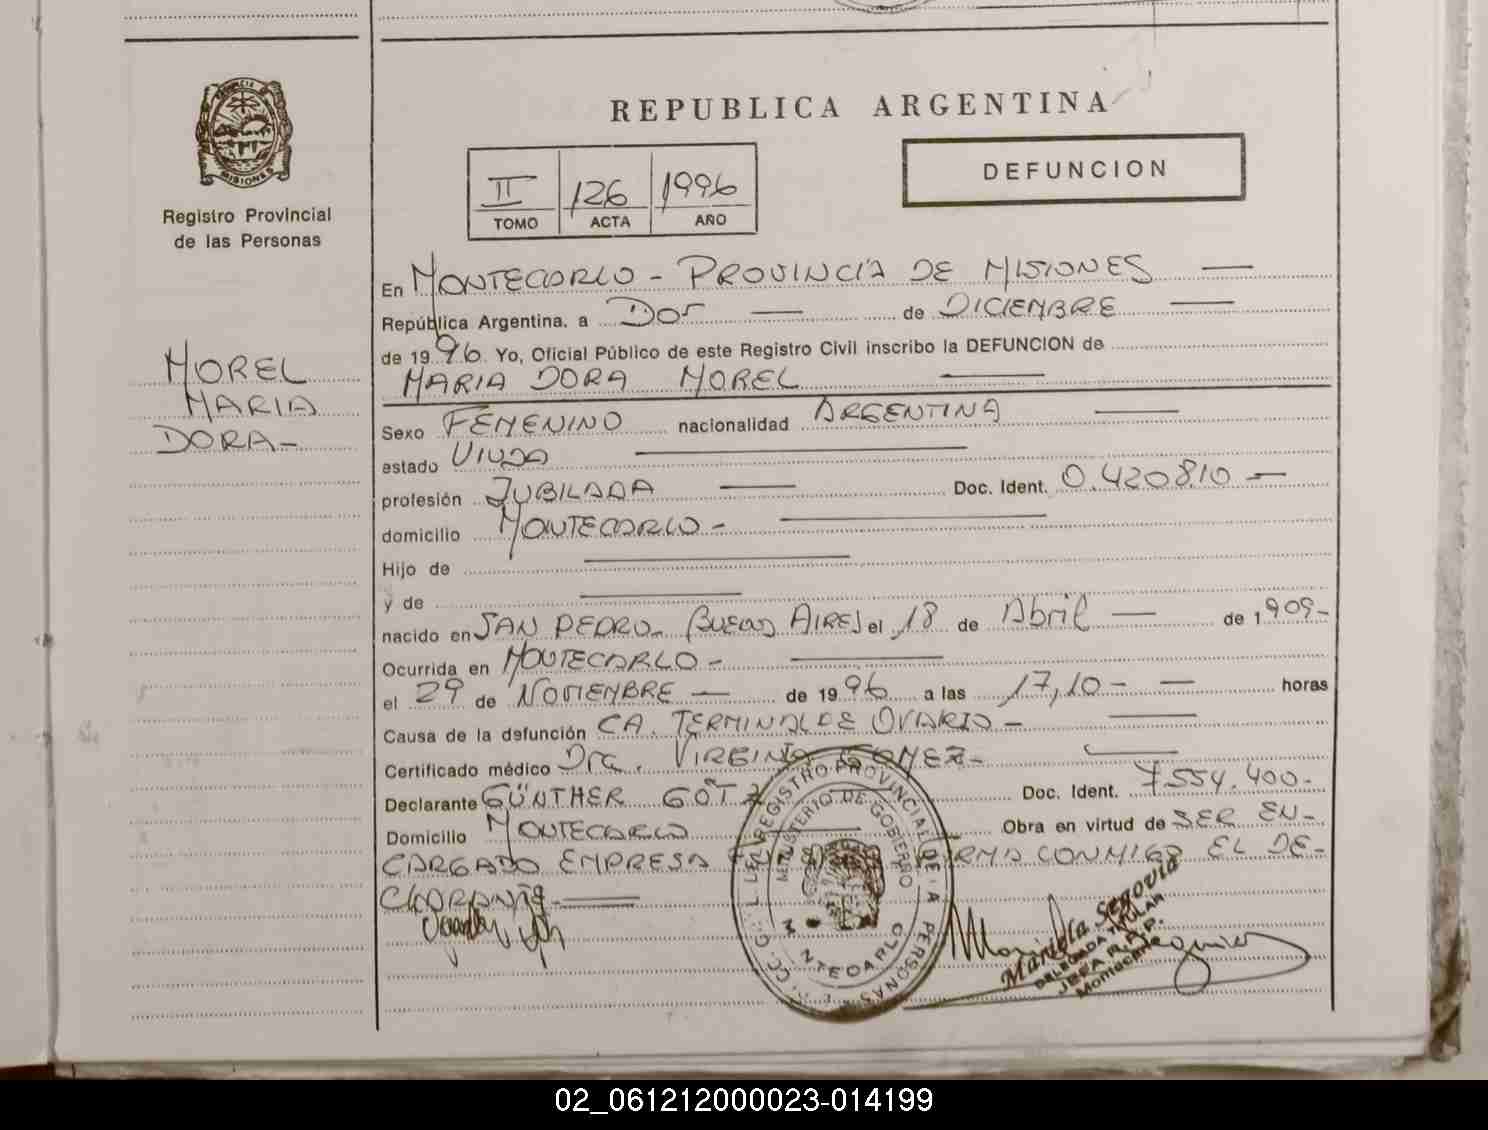 PROVINCIA DE
MISIONES
Registro Provincial
de las Personas
MOREL
MARIA
DORA-
REPUBLICA ARGENTINA
II 126 1996
TOMO ACTA AÑO
DEFUNCION
En MONTECARLO - PROVINCIA DE MISIONES
República Argentina, a DOS de DICIEMBRE
de 1996. Yo, Oficial Público de este Registro Civil inscribo la DEFUNCION de
MARIA DORA MOREL
Sexo FEMENINO nacionalidad ARGENTINA
estado VIUDA
profesión JUBILADA Doc. Ident. 0.420810 -
domicilio MONTECARLO -
Hijo de
y de
nacido en SAN PEDRO - BUENOS AIRES el 18 de Abril de 1909-
Ocurrida en MONTECARLO -
el 29 de NOVIEMBRE de 1996 a las 17,10- horas
Causa de la defunción CA. TERMINAL DE OVARIO -
Certificado médico Dra. VIRGINIA GOMEZ-
Declarante GÜNTHER GOTZ Doc. Ident. 7.554.400-
Domicilio MONTECARLO Obra en virtud de SER EN-
CARGADO EMPRESA FIRMA CONMIGO EL DE-
CLARANTE
REGISTRO PROVINCIAL DE PERSONAS
MINISTERIO DE GOBIERNO
Mariela Segovia
DELEGADA TITULAR
JEFA R.P.P.
02_061212000023-014199